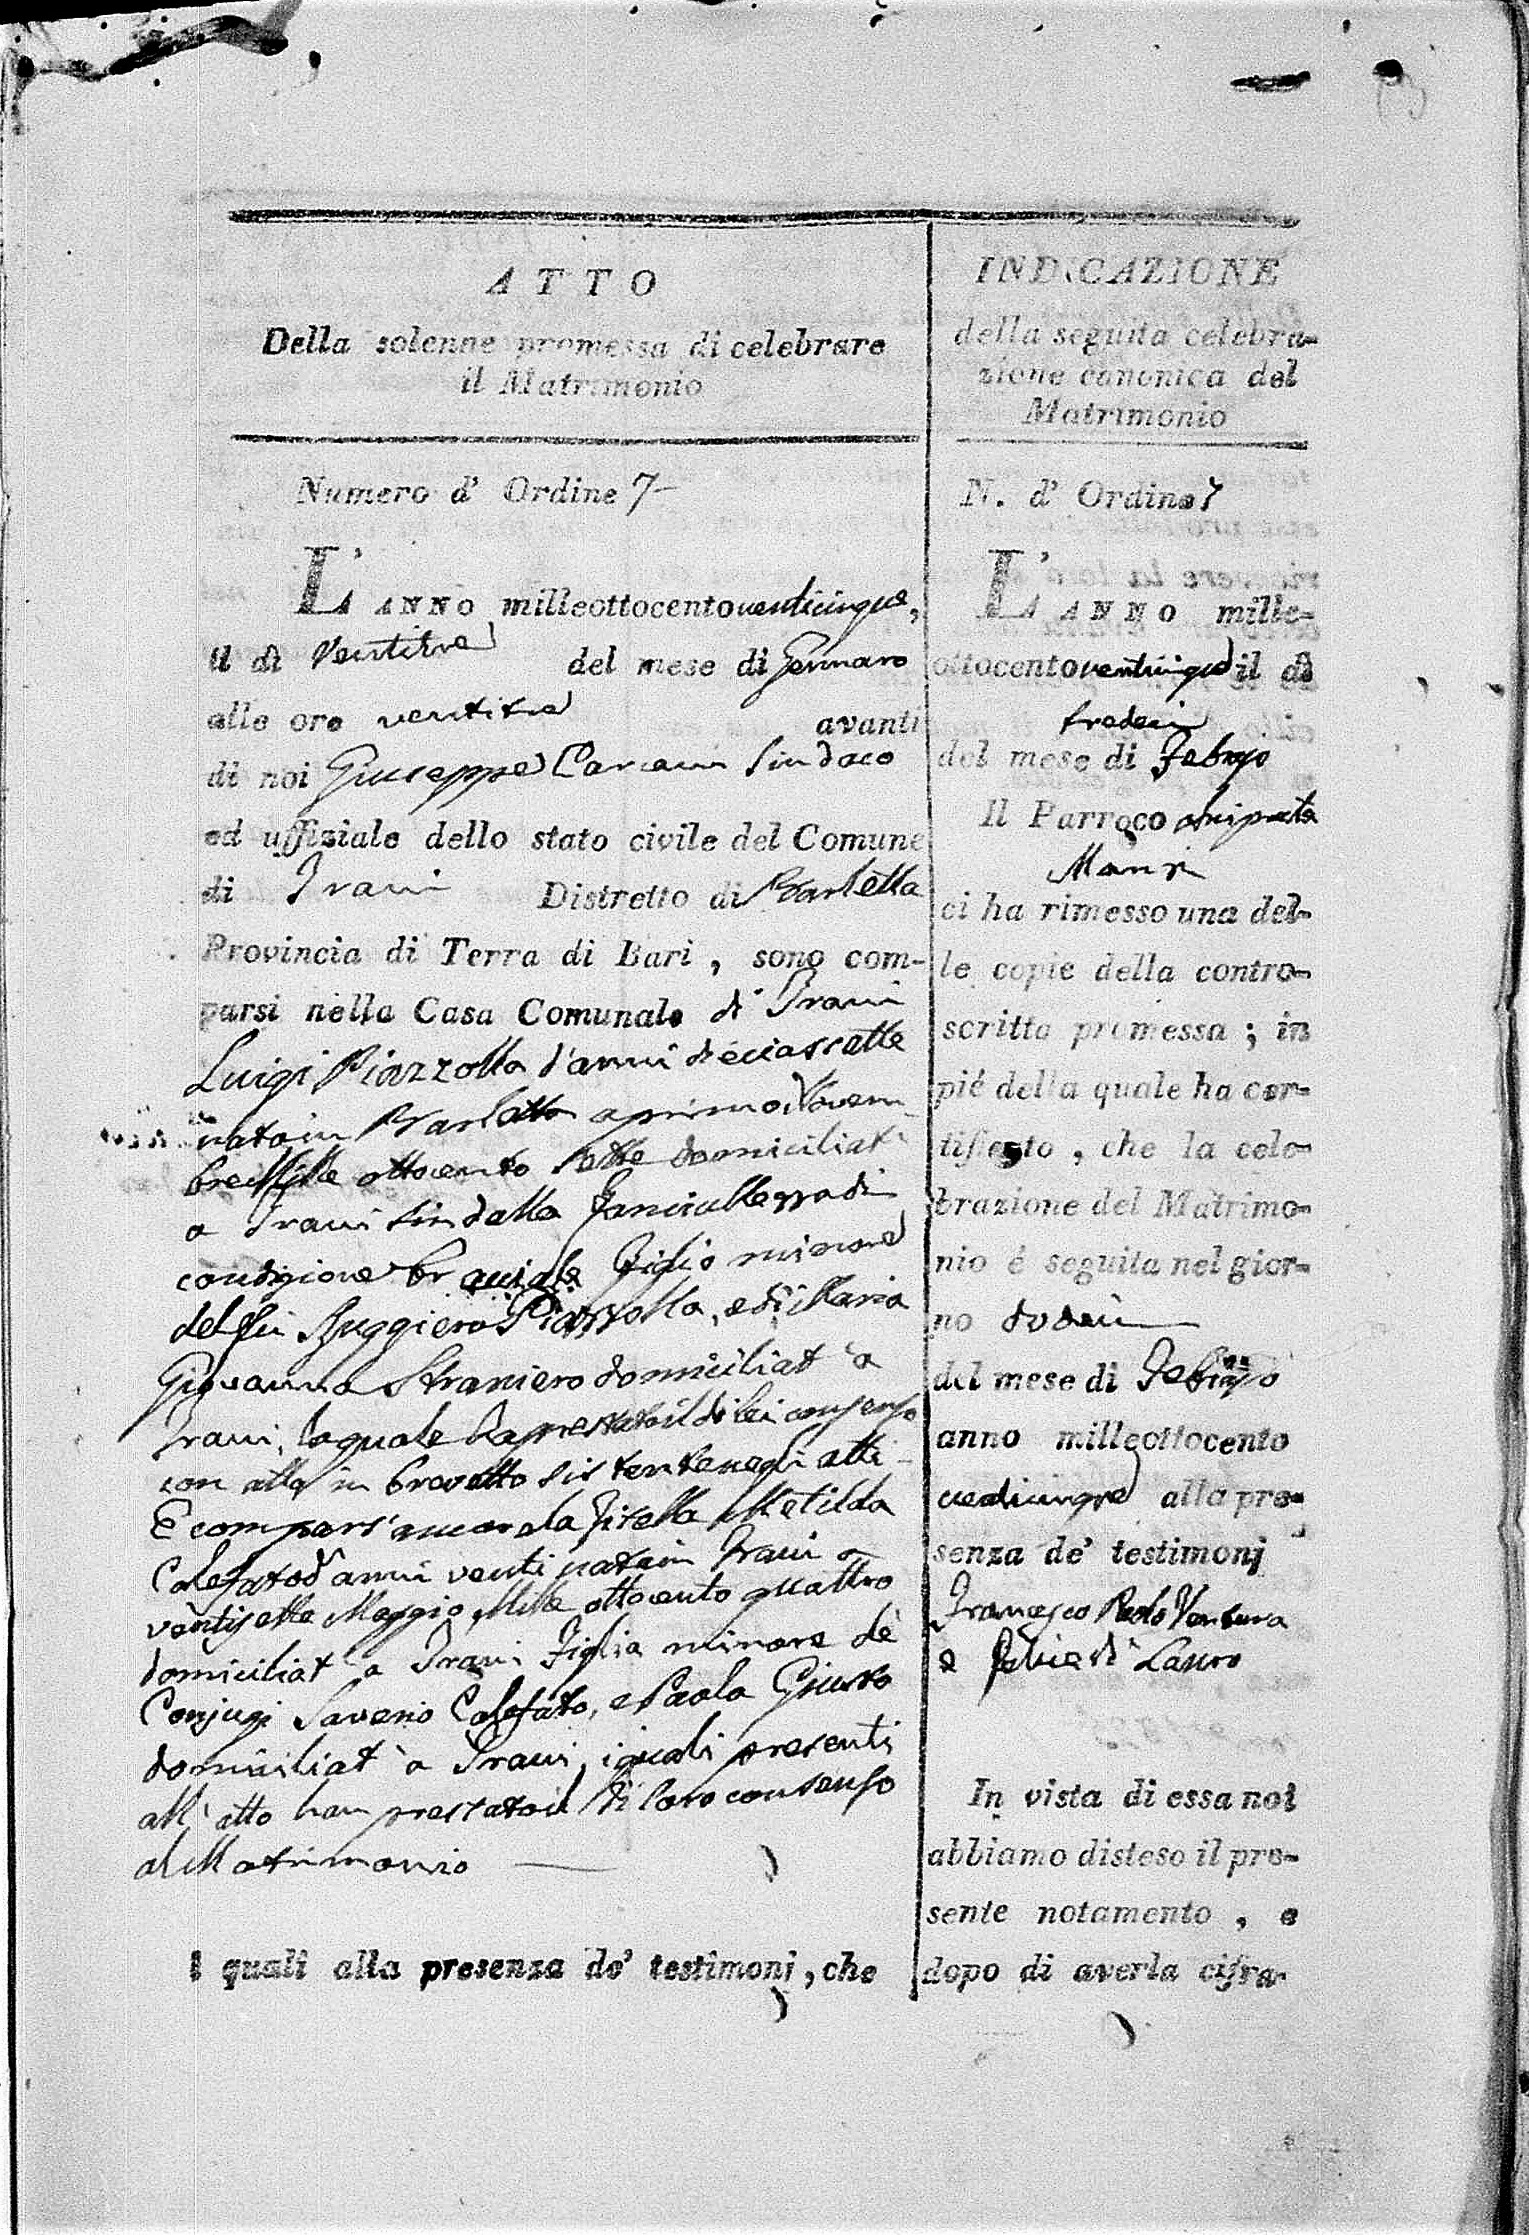 ATTO
Della solenne promessa di celebrare
il Matrimonio
Numero d' Ordine 7
L'ANNO milleottocentoventicinque,
il dì Ventitre del mese di Gennaro
alle ore ventitre avanti
di noi Giuseppe Carcani Sindaco
ed uffiziale dello stato civile del Comune
di Trani Distretto di Barletta
Provincia di Terra di Bari, sono com-
parsi nella Casa Comunale di Trani
Luigi Piazzolla d'anni dieciassette
nato in Barletta a primo Novem
bre Mille ottocento sette domiciliat
a Trani sin dalla fanciullezza di
condizione Figlio minore
del fu Ruggiero Piazzolla, e di Maria
Giovanna Straniero domiciliat a
Trani, la quale ha prestato il di lei consenso
con atto in brevetto sistente negli atti
E comparsa ancora la Zitella Metilda
Calefato d'anni venti nata in Trani a
ventisette Maggio Mille ottocento quattro
domiciliat a Trani Figlia minore de'
Conjugi Saverio Calefato, e Paola Giusto
domiciliat a Trani, i quali presenti
all' atto han prestato il di loro consenso
al Matrimonio
I quali alla presenza de' testimonj, che
INDICAZIONE
della seguita celebra-
zione canonica del
Matrimonio
N. d' Ordine 7
L'ANNO mille-
ottocentoventicinque il dì
tredeci
del mese di Febrajo
Il Parroco
ci ha rimesso una del-
le copie della contro-
scritta promessa; in
piè della quale ha cer-
tificato, che la cele-
brazione del Matrimo-
nio è seguita nel gior-
no dodeci
del mese di Febrajo
anno milleottocento
venticinque alla pre-
senza de' testimonj
Francesco Paolo Ventura
e Felice di Lauro
In vista di essa noi
abbiamo disteso il pre-
sente notamento, e
dopo di averla cifra-